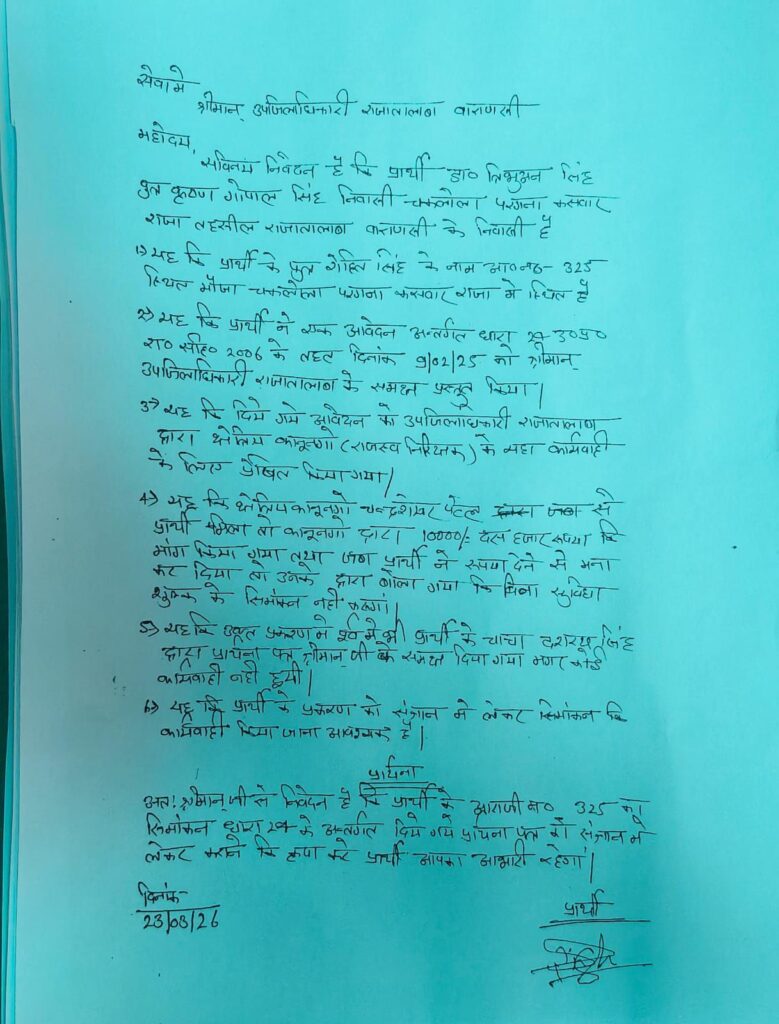 सेवामे
श्रीमान् उपजिलाधिकारी राजातालाब वाराणसी
महोदय,
सविनय निवेदन है कि प्रार्थी डा० त्रिभुअन सिंह
पुत्र कृष्ण गोपाल सिंह निवासी चकलोला परगना कसवार
राजा तहसील राजातालाब वाराणसी के निवासी है
1) यह कि प्रार्थी के पुत्र रोहित सिंह के नाम आ०न०- 325
स्थित मौजा चकलोला परगना कसवार राजा मे स्थित है
2) यह कि प्रार्थी ने एक आवेदन अन्तर्गत धारा 24 उ०प्र०
रा० सं० 2006 के तहत दिनांक 9/02/25 को श्रीमान्
उपजिलाधिकारी राजातालाब के समक्ष प्रस्तुत किया|
3) यह कि दिये गये आवेदन को उपजिलाधिकारी राजातालाब
द्वारा क्षेत्रिय कानूनगो (राजस्व निरिक्षक) के यहा कार्यवाही
के लिए प्रेषित किया गया|
4) यह कि क्षेत्रिय कानूनगो चन्द्रशेखर पटेल जब से
प्रार्थी मिला तो कानूनगो द्वारा 10000/- दस हजार रूपया कि
मांग किया गया तथा जब प्रार्थी ने रूपया देने से मना
कर दिया तो उनके द्वारा बोला गया कि बिना सुविधा
शुल्क के सिमांकन नही करूगां|
5) यह कि उक्त प्रकरण मे पूर्व मे भी प्रार्थी के चाचा दशरथ सिंह
द्वारा प्रार्थना पत्र श्रीमान् जी के समक्ष दिया गया मगर कोई
कार्यवाही नही हुयी|
6) यह कि प्रार्थी के प्रकरण को संज्ञान मे लेकर सिमांकन कि
कार्यवाही किया जाना आवश्यक है|
प्रार्थना
अतः श्रीमान् जी से निवेदन है कि प्रार्थी के आराजी न० 325 का
सिमांकन धारा 24 के अन्तर्गत दिये गये प्रार्थना पत्र को संज्ञान मे
लेकर कराने कि कृपा करे प्रार्थी आपका आभारी रहेगा|
दिनांक
23/03/26
प्रार्थी